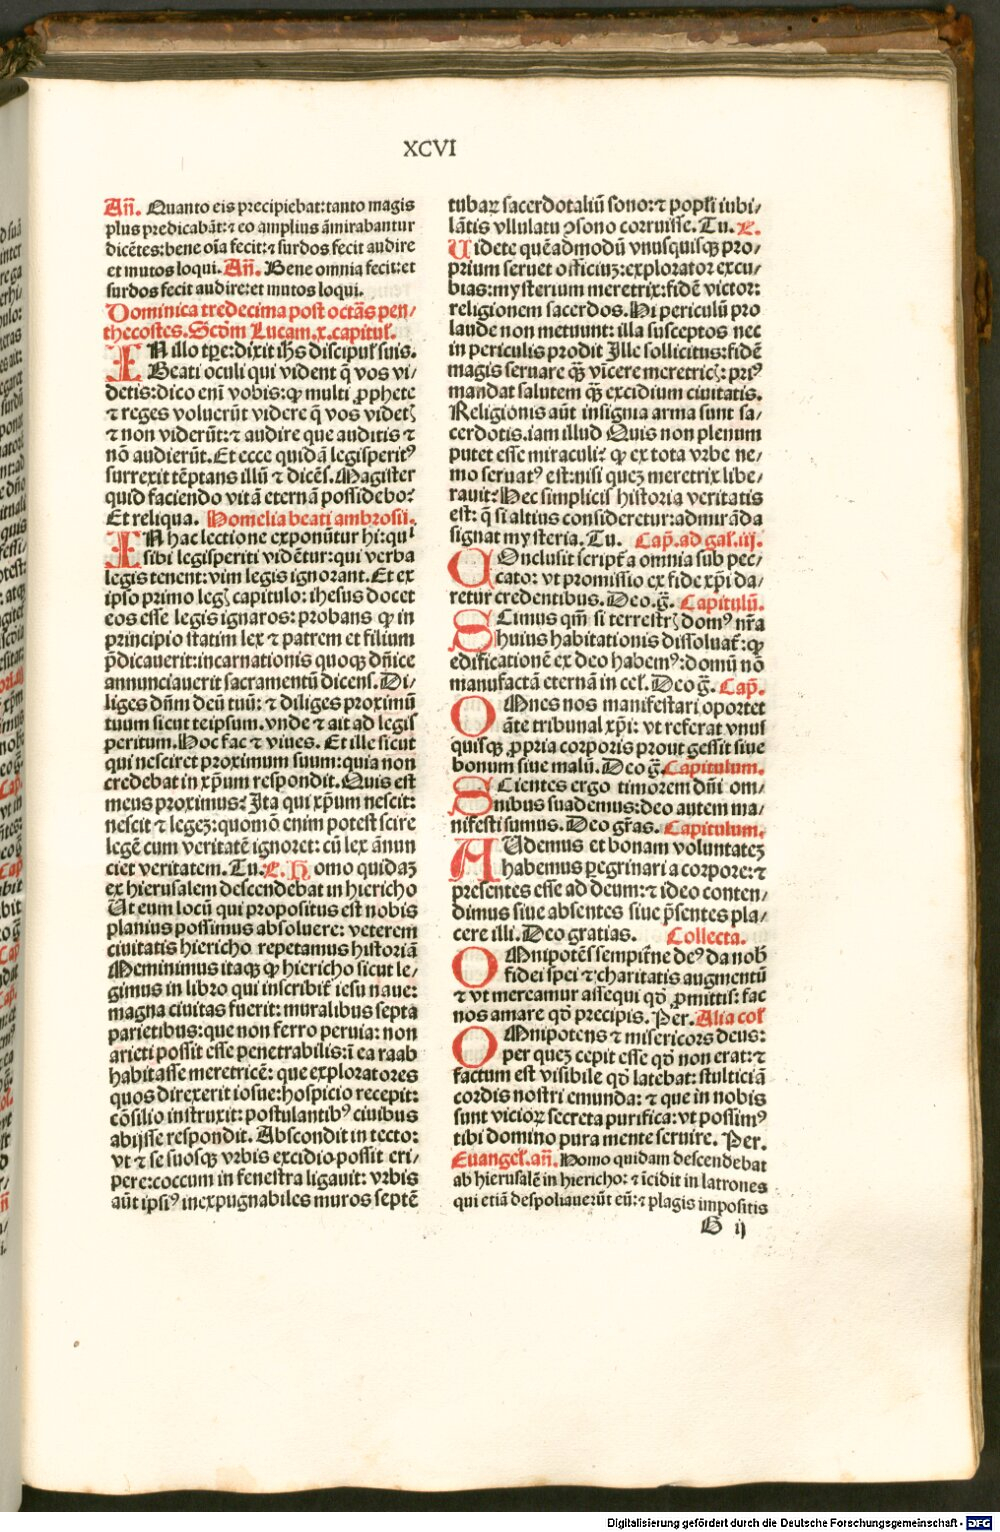 XCVI
Añ. Quanto eis precipiebat:tanto magis
plus predicabāt:⁊ eo amplius āmirabantur
dicētes:bene oīa fecit:⁊ surdos fecit audire
et mutos loqui. Añ. Bene omnia fecit:et
surdos fecit audire:et mutos loqui.
Dominica tredecima post octās pen/
thecostes. Scd̄m Lucam.x.capitul̄.
IN illo tp̄e:dixit ih̄s discipul̄ suis.
Beati oculi qui vident q̄ vos vi/
detis:dico eni vobis:ꝙ multi ꝓphete
⁊ reges voluerūt videre q̄ vos videtʒ
⁊ non viderūt:⁊ audire que auditis ⁊
nō audierūt. Et ecce quidā legisperitꝰ
surrexit tēptans illū ⁊ dicēs. Magister
quid faciendo vitā eternā possidebo?
Et reliqua. Homelia beati ambrosii.
IN hac lectione exponūtur hi:qui
sibi legisperiti vidētur:qui verba
legis tenent:vim legis ignorant. Et ex
ipso primo legʒ capitulo: ihesus docet
eos esse legis ignaros: probans ꝙ in
principio statim lex ⁊ patrem et filium
p̄dicauerit:incarnationis quoqʒ dn̄ice
annunciauerit sacramentū dicens. Di/
liges dn̄m deū tuū: ⁊ diliges proximū
tuum sicut teipsum. vnde ⁊ ait ad legis
peritum. Hoc fac ⁊ viues. Et ille sicut
qui nesciret proximum suum:quia non
credebat in xp̄um respondit. Quis est
meus proximus? Ita qui xp̄um nescit:
nescit ⁊ legeʒ:quomō enim potest scire
legē cum veritatē ignoret: cū lex ānun
ciet veritatem. Tu. R. Homo quidaʒ
ex hierusalem descendebat in hiericho
Ut eum locū qui propositus est nobis
planius possimus absoluere: veterem
ciuitatis hiericho repetamus historiā
Meminimus itaqʒ ꝙ hiericho sicut le/
gimus in libro qui inscribit̄ iesu naue:
magna ciuitas fuerit: muralibus septa
parietibus:que non ferro peruia: non
arieti possit esse penetrabilis:ī ea raab
habitasse meretricē: que exploratores
quos direxerit iosue:hospicio recepit:
cōsilio instruxit: postulantibꝰ ciuibus
abijsse respondit. Abscondit in tecto:
vt ⁊ se suosqʒ vrbis excidio possit eri/
pere:coccum in fenestra ligauit: vrbis
aūt ipsiꝰ inexpugnabiles muros septē
tubaꝝ sacerdotaliū sono:⁊ popl̄i iubi/
lātis vllulatu ꝯsono corruisse. Tu. R.
Uidete quēadmodū vnusquisqʒ pro/
prium seruet officiuʒ:explorator excu/
bias:mysterium meretrix:fidē victor:
religionem sacerdos. Hi periculū pro
laude non metuunt: illa susceptos nec
in periculis prodit Ille sollicitus:fidē
magis seruare qʒ̄ vīcere meretricʒ: priꝰ
mandat salutem qʒ̄ excidium ciuitatis.
Religionis aūt insignia arma sunt sa/
cerdotis.iam illud Quis non plenum
putet esse miraculi? ꝙ ex tota vrbe ne/
mo seruatꝰ est:nisi queʒ meretrix libe/
rauit? Hec simplicis historia veritatis
est: q̄ si altius consideretur:admirāda
signat mysteria. Tu. Cap̄. ad gal̄.iij.
COnclusit script̄a omnia sub pec/
cato: vt promissio ex fide xp̄i da/
retur credentibus. Deo.ḡ. Capitulū.
SCimus qm̄ si terrestrʒ domꝰ nr̄a
huius habitationis dissoluat̄:ꝙ
edificationē ex deo habemꝰ:domū nō
manufactā eternā in cel̄. Deo ḡ. Cap̄.
OMnes nos manifestari oportet
āte tribunal xp̄i: vt referat vnus
quisqʒ ꝓpria corporis prout gessit siue
bonum siue malū. Deo ḡ. Capitulum.
SCientes ergo timorem dn̄i om/
nibus suademus:deo autem ma/
nifesti sumus. Deo gr̄as. Capitulum.
AUdemus et bonam voluntateʒ
habemus ꝑegrinari a corpore:⁊
presentes esse ad deum:⁊ ideo conten/
dimus siue absentes siue p̄sentes pla/
cere illi. Deo gratias. Collecta.
OMnipotēs sempitn̄e deꝰ da nob̄
fidei spei ⁊ charitatis augmentū
⁊ vt mereamur assequi qd̄ ꝓmittis: fac
nos amare qd̄ precipis. Per. Alia col̄
OMnipotens ⁊ misericors deus:
per queʒ cepit esse qd̄ non erat:⁊
factum est visibile qd̄ latebat: stulticiā
cordis nostri emunda: ⁊ que in nobis
sunt vicioꝝ secreta purifica:vt possimꝰ
tibi domino pura mente seruire. Per.
Euangel̄.añ. Homo quidam descendebat
ab hierusalē in hiericho: ⁊ īcidit in latrones
qui etiā despoliauerūt eū:⁊ plagis impositis
G ij
Digitalisierung gefördert durch die Deutsche Forschungsgemeinschaft - DFG